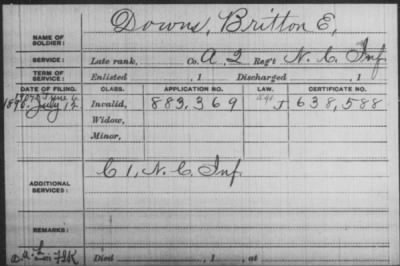 NAME OF SOLDIER: Downs, Britton E,
SERVICE: Late rank, Co. A, 2 Reg't N. C. Inf
TERM OF SERVICE: Enlisted , 1 Discharged , 1
DATE OF FILING. CLASS. APPLICATION NO. LAW. CERTIFICATE NO.
1898. July, 12 Invalid, 883,369 J 638,588
Widow,
Minor,
ADDITIONAL SERVICES: C 1, N. C. Inf
REMARKS:
Died , 1 , at